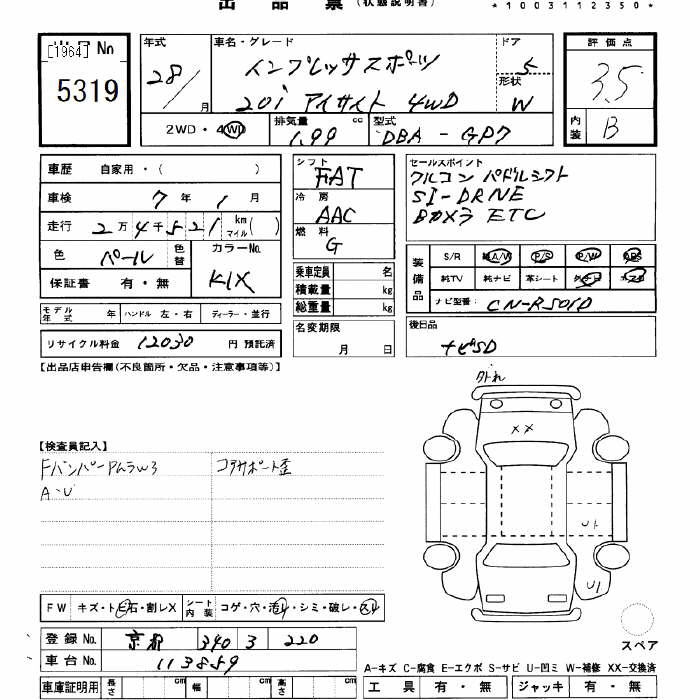 出品票(状態説明書)
*1003112350*
[1964] No
5319
年式
28/
月
車名・グレード
インプレッサスポーツ
20i アイサイト 4WD
ドア
5
形状
W
評価点
3.5
内装
B
2WD・4WD
排気量
1.99
cc
型式
DBA-GP7
車歴
自家用・( )
車検
7年 1月
走行
2万4千521 km マイル( )
色
パール
色替
カラーNo.
K1X
保証書
有・無
モデル年式
年
ハンドル
左・右
ディーラー・並行
リサイクル料金
12030
円
預託済
シフト
FAT
冷房
AAC
燃料
G
乗車定員
名
積載量
kg
総重量
kg
名変期限
月 日
セールスポイント
クルコン パドルシフト
SI-DRNE
Bカメラ ETC
装備品
S/R
純A/W
P/S
P/W
ABS
純TV
純ナビ
革シート
ナビ型番:
CN-R501D
後日品
ナビSD
【出品店申告欄(不良箇所・欠品・注意事項等)】
【検査員記入】
FバンパーPムラW3
コアサポート歪
A・U
外れ
XX
U1
U1
FW
キズ・トビ石・割レX
シート内装
コゲ・穴・汚レ・シミ・破レ・スレ
登録No.
京都
340
3
220
車台No.
113859
車庫証明用
長さ
cm
幅
cm
高さ
cm
スペア
A-キズ C-腐食 E-エクボ S-サビ U-凹ミ W-補修 XX-交換済
工具
有・無
ジャッキ
有・無